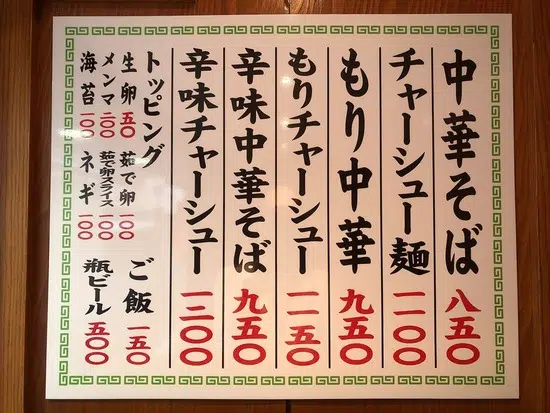 中華そば 八五〇
チャーシュー麺 一一〇〇
もり中華 九五〇
もりチャーシュー 一一五〇
辛味中華そば 九五〇
辛味チャーシュー 一二〇〇
トッピング
生卵 五〇
茹で卵 一〇〇
メンマ 二〇〇
茹で卵スライス 一〇〇
海苔 一〇〇
ネギ 一〇〇
ご飯 一五〇
瓶ビール 五〇〇